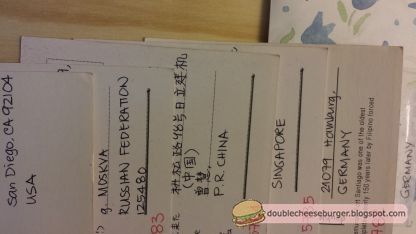 San Diego, CA 92104
USA
g. MOSKVA
RUSSIAN FEDERATION
125480
83
路46号日立建机
(中国)
P.R. CHINA
SINGAPORE
21079 Hamburg,
GERMANY
Santiago was one of the oldest
150 years later by Filipino forced
GERMANY
doublecheeseburger.blogspot.com